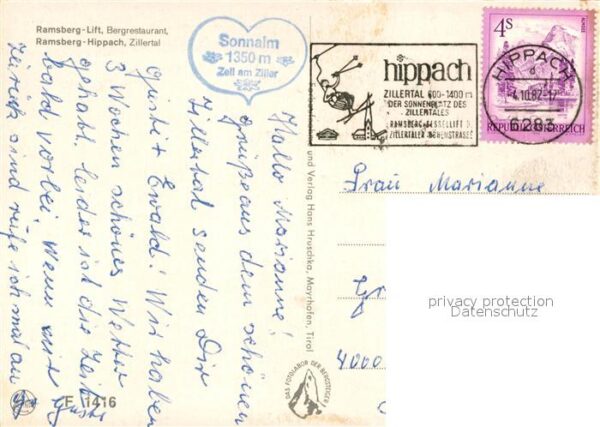 Ramsberg-Lift, Bergrestaurant,
Ramsberg-Hippach, Zillertal
Sonnalm
1350 m
Zell am Ziller
hippach
ZILLERTAL 600-1400 m
DER SONNENPLATZ DES
ZILLERTALES
RAMSBERG-SESSELLIFT
ZILLERTALER HÖHENSTRASSE
4S
REPUBLIK ÖSTERREICH
HIPPACH
.10.82-17
6283
Hallo Marianne!
Grüße aus dem schönen
Zillertal senden Dir
Gusti + Ewald! Wir haben
3 Wochen schönes Wetter
gehabt, leider ist die Zeit
bald vorbei. Wenn wir
zurück sind rufe ich mal an
Gusti
und Verlag Hans Hruschka, Mayrhofen, Tirol
DAS FOTOLABOR DER BERGSTEIGER
F 1416
Frau Marianne
4000
privacy protection
Datenschutz